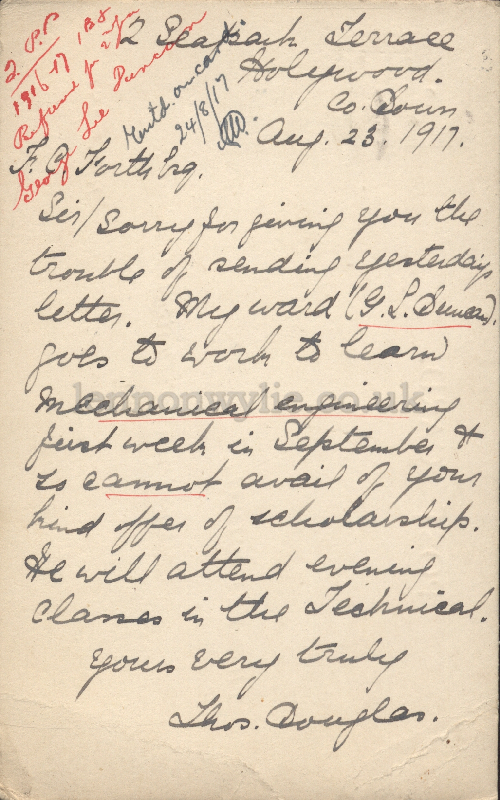 2 Seapark Terrace
Holywood.
Co. Down
Aug. 23, 1917.
1916-17 1st
Refused for 2nd
George Lee Duncan
Entd. on card
24/8/17
F. C. Forth Esq.
Sir/ Sorry for giving you the
trouble of sending yesterdays
letter. My ward (G. L. Duncan).
goes to work to learn
mechanical engineering
first week in September &
so cannot avail of your
kind offer of scholarship.
He will attend evening
classes in the Technical.
yours very truly
Thos. Douglas.
lennonwylie.co.uk